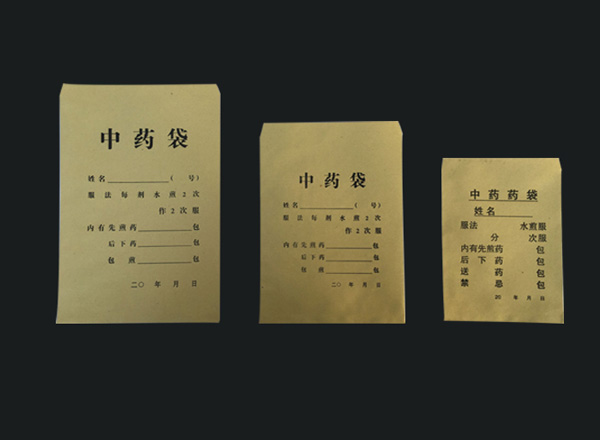 中药袋
姓名__________( 号)
服法每剂水煎2次
作2次服
内有先煎药________包
后下药________包
包煎________包
二〇 年 月 日
中药袋
姓名__________( 号)
服法每剂水煎2次
作2次服
内有先煎药________包
后下药________包
包煎________包
二〇 年 月 日
中药药袋
姓名______
服法 水煎服
分 次服
内有先煎药 包
后下药 包
送药 包
禁忌 包
20 年 月 日